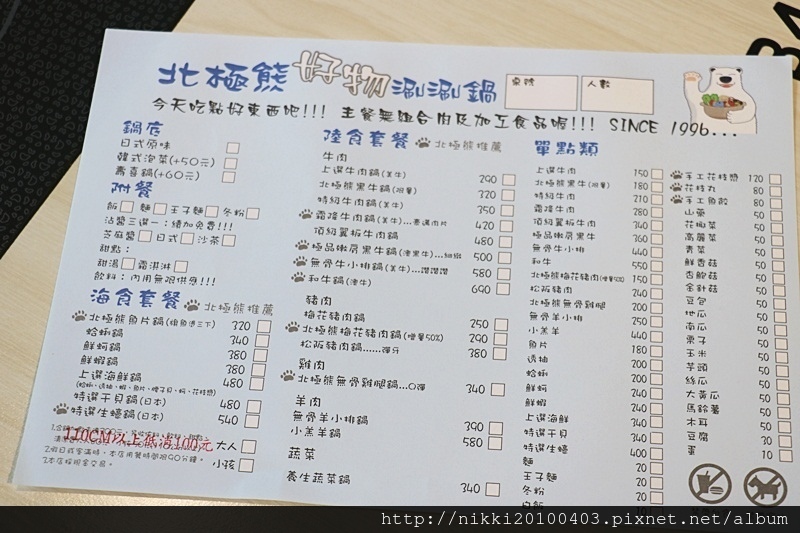 北極熊 好物 涮涮鍋
桌號
人數
今天吃點好東西吧!!! 主餐無組合肉及加工食品喔!!! SINCE 1996...
鍋底
日式原味
韓式泡菜(+50元)
壽喜鍋(+60元)
附餐
飯 麵 王子麵 冬粉
沾醬三選一：續加免費!!!
芝麻醬 日式 沙茶
甜點：
甜湯 霜淇淋
飲料：內用無限供應!!!
海食套餐 北極熊推薦
北極熊魚片鍋 320
蛤蜊鍋 340
鮮蚵鍋 380
鮮蝦鍋 380
上選海鮮鍋 480
特選干貝鍋(日本) 480
特選生蠔鍋(日本) 540
110CM以上低消100元
大人
小孩
2.假日或客滿時，本店用餐時間限90分鐘。
3.本店採現金交易。
陸食套餐 北極熊推薦
牛肉
上選牛肉鍋(美牛) 290
北極熊黑牛鍋(限量) 320
特級牛肉鍋(美牛) 350
霜降牛肉鍋(美牛)... 420
頂級翼板牛肉鍋 480
極品嫩肩黑牛鍋(澳黑牛)... 500
無骨牛小排鍋(美牛)...讚讚讚 580
和牛鍋(澳牛) 690
豬肉
梅花豬肉鍋 250
北極熊梅花豬肉鍋(增量50%) 290
松阪豬肉鍋......彈牙 380
雞肉
北極熊無骨雞腿鍋...Q彈 340
羊肉
無骨羊小排鍋 390
小羔羊鍋 580
蔬菜
養生蔬菜鍋 340
單點類
上選牛肉 150
北極熊黑牛(限量) 180
特級牛肉 210
霜降牛肉 280
頂級翼板牛肉 340
極品嫩肩黑牛 360
無骨牛小排 440
和牛 550
北極熊梅花豬肉(增量50%) 150
松阪豬肉 240
北極熊無骨雞腿 200
無骨羊小排 250
小羔羊 440
魚片 180
透抽 200
蛤蜊 200
鮮蚵 240
鮮蝦 240
上選海鮮 340
特選干貝 340
特選生蠔 400
麵 20
王子麵 20
冬粉 20
白飯 10
手工花枝漿 120
花枝丸 80
手工魚餃 80
山藥 50
花椰菜 50
高麗菜 50
青菜 50
鮮香菇 50
杏鮑菇 50
金針菇 50
豆包 50
地瓜 50
南瓜 50
栗子 50
玉米 50
芋頭 50
絲瓜 50
大黃瓜 50
馬鈴薯 50
木耳 50
豆腐 30
蛋 10
http://nikki20100403.pixnet.net/album